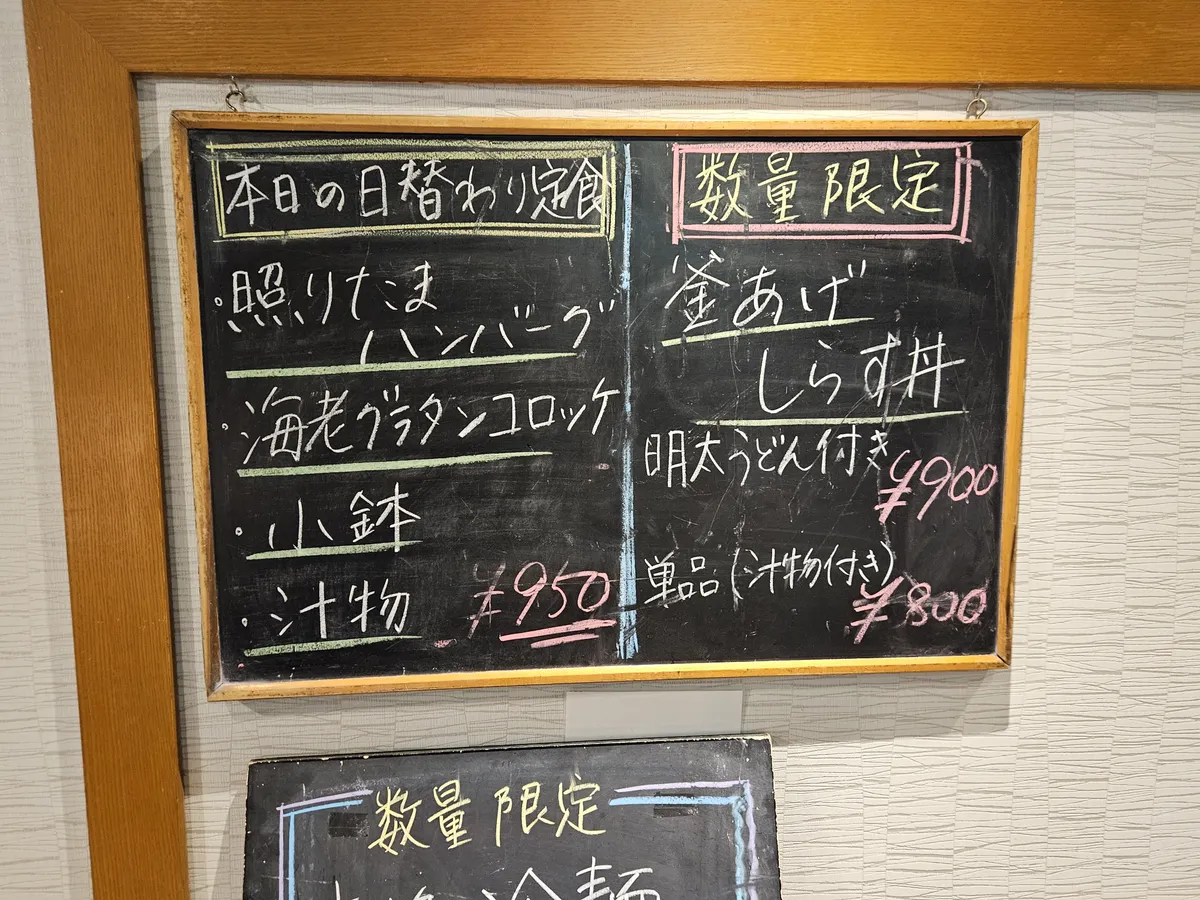 本日の日替わり定食
・照りたま
ハンバーグ
・海老グラタンコロッケ
・小鉢
・汁物 ¥950
数量限定
釜あげ
しらす丼
明太うどん付き
¥900
単品(汁物付き)
¥800
数量限定
冷麺